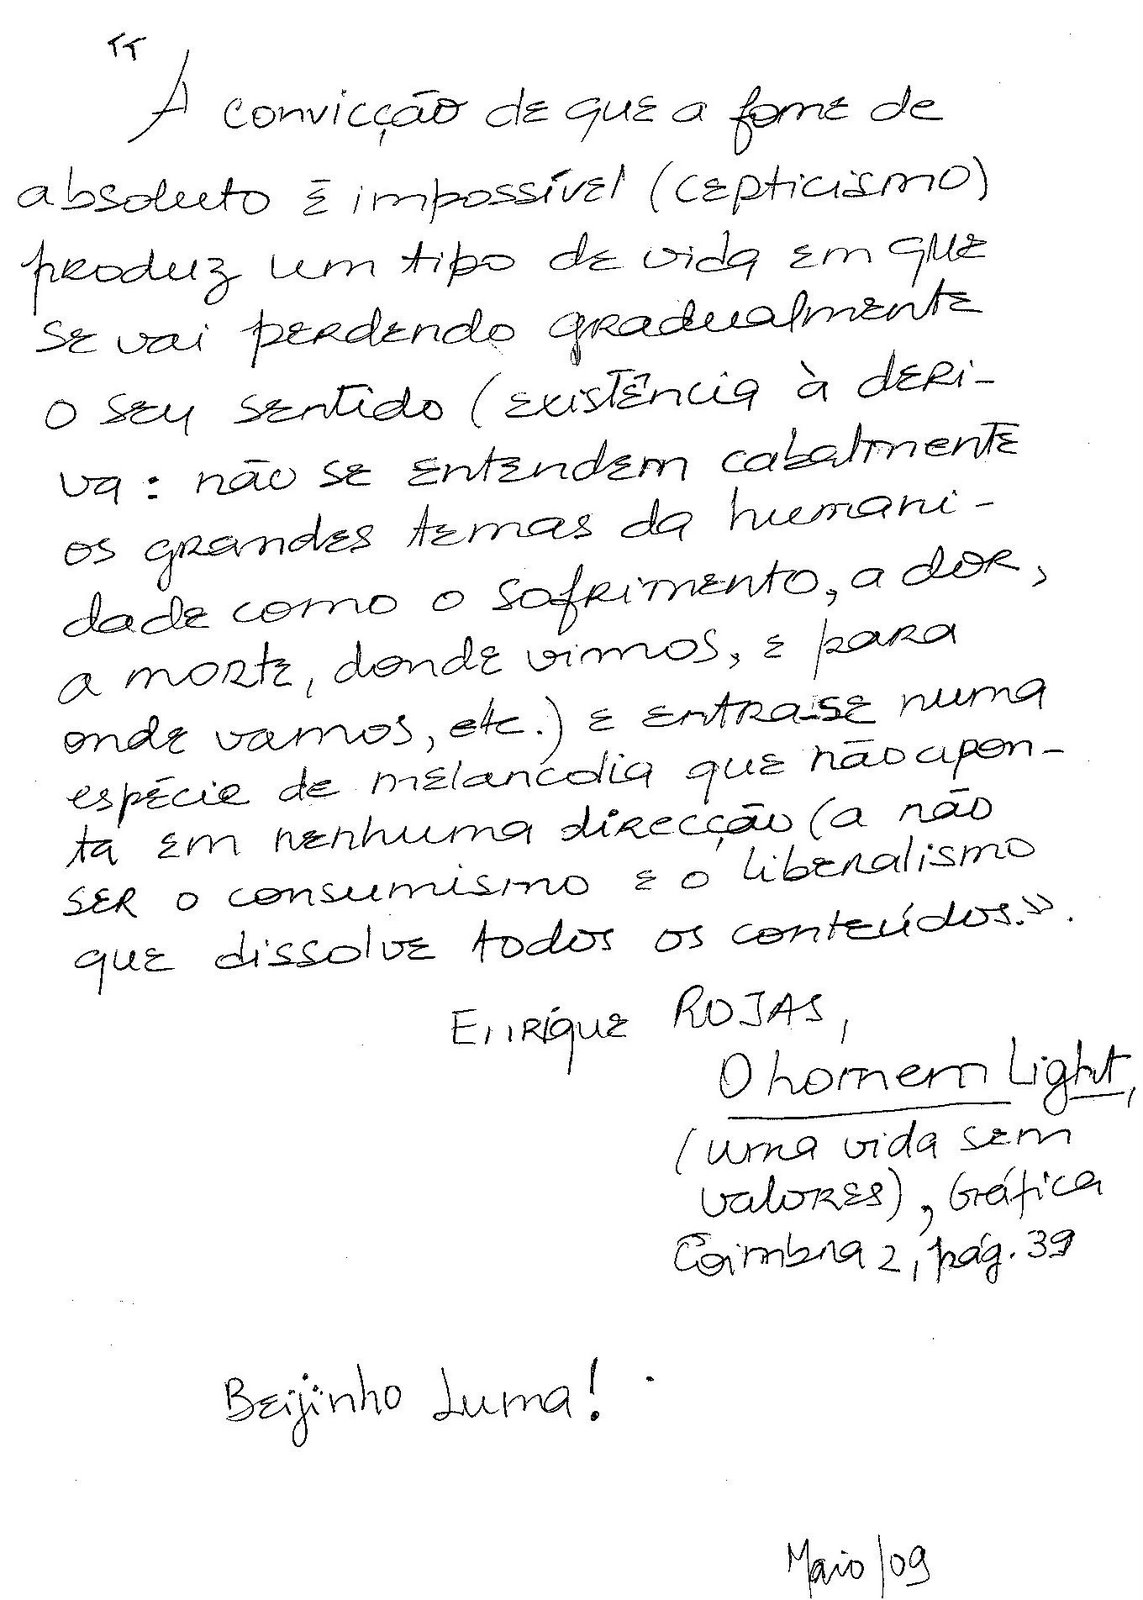 "
A convicção de que a fome de
absoluto é impossível (cepticismo)
produz um tipo de vida em que
se vai perdendo gradualmente
o seu sentido (existência à deri-
va: não se entendem cabalmente
os grandes temas da humani-
dade como o sofrimento, a dor,
a morte, donde vimos, e para
onde vamos, etc.) e entra-se numa
espécie de melancolia que não apon-
ta em nenhuma direcção (a não
ser o consumismo e o liberalismo
que dissolve todos os conteúdos.».
Enrique ROJAS,
O homem Light,
(uma vida sem
valores), Gráfica
Coimbra 2, pág. 39
Beijinho Luma!
Maio/09